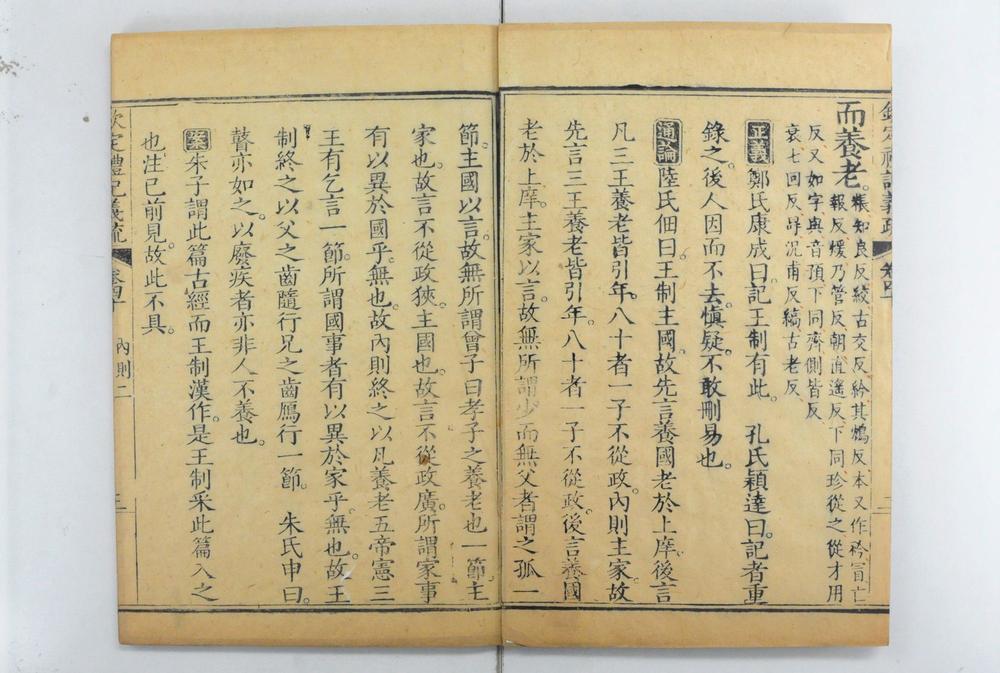 欽定禮記義疏 卷四十
而養老。糗知良反絞古交反紟其鴆反本又作衿冐亡
報反煖乃管反朝直遙反下同珍從之從才用
反又如字與音預下同齊側皆反
衰七回反冔況甫反縞古老反
正義 鄭氏康成曰。記王制有此。 孔氏穎達曰。記者重
錄之。後人因而不去。愼疑。不敢刪易也。
通論 陸氏佃曰。王制主國。故先言養國老於上庠。後言
凡三王養老皆引年。八十者一子不從政。內則主家。故
先言三王養老皆引年。八十者一子不從政。後言養國
老於上庠。主家以言。故無所謂少而無父者謂之孤一
節。主國以言。故無所謂曾子曰孝子之養老也一節。主
家也。故言不從政狹。主國也。故言不從政廣。所謂家事
有以異於國乎。無也。故內則終之以凡養老五帝憲三
王有乞言一節。所謂國事者有以異於家乎。無也。故王
制終之以父之齒隨行兄之齒鴈行一節。 朱氏申曰。
瞽亦如之。以廢疾者亦非人不養也。
案 朱子謂此篇古經而王制漢作。是王制采此篇入之
也。注已前見。故此不具。
欽定禮記義疏 卷四十 內則二 三